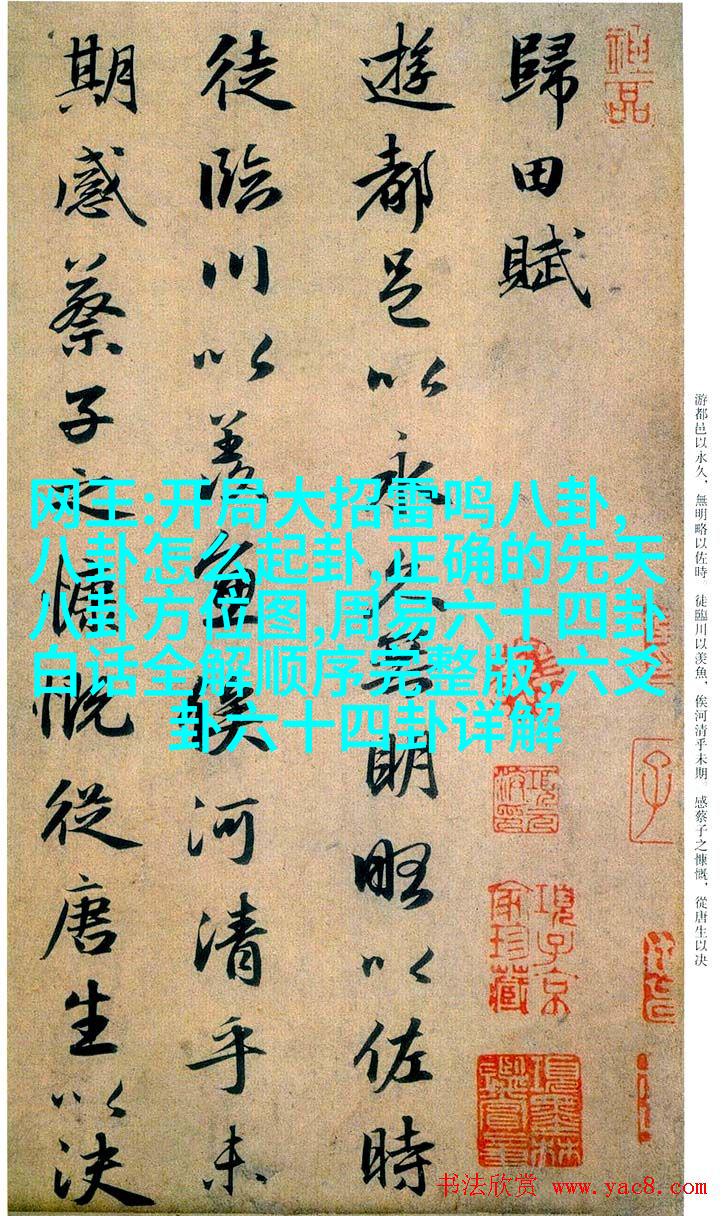 歸田賦
遊都邑以永久無明略以佐時
徒臨川以羨魚俟河清乎未
期感蔡子之慷慨從唐生以決
网王:开局大招雷鸣八卦,
八卦怎么起卦,正确的先天
八卦方位图,周易六十四卦
白话全解顺序完整版,六爻
卦六十四卦详解
游都邑以永久，無明略以佐時。徒臨川以羨魚，俟河清乎未期。感蔡子之慷慨，從唐生以决
項子京
家珍藏
書法欣赏 www.yac8.com